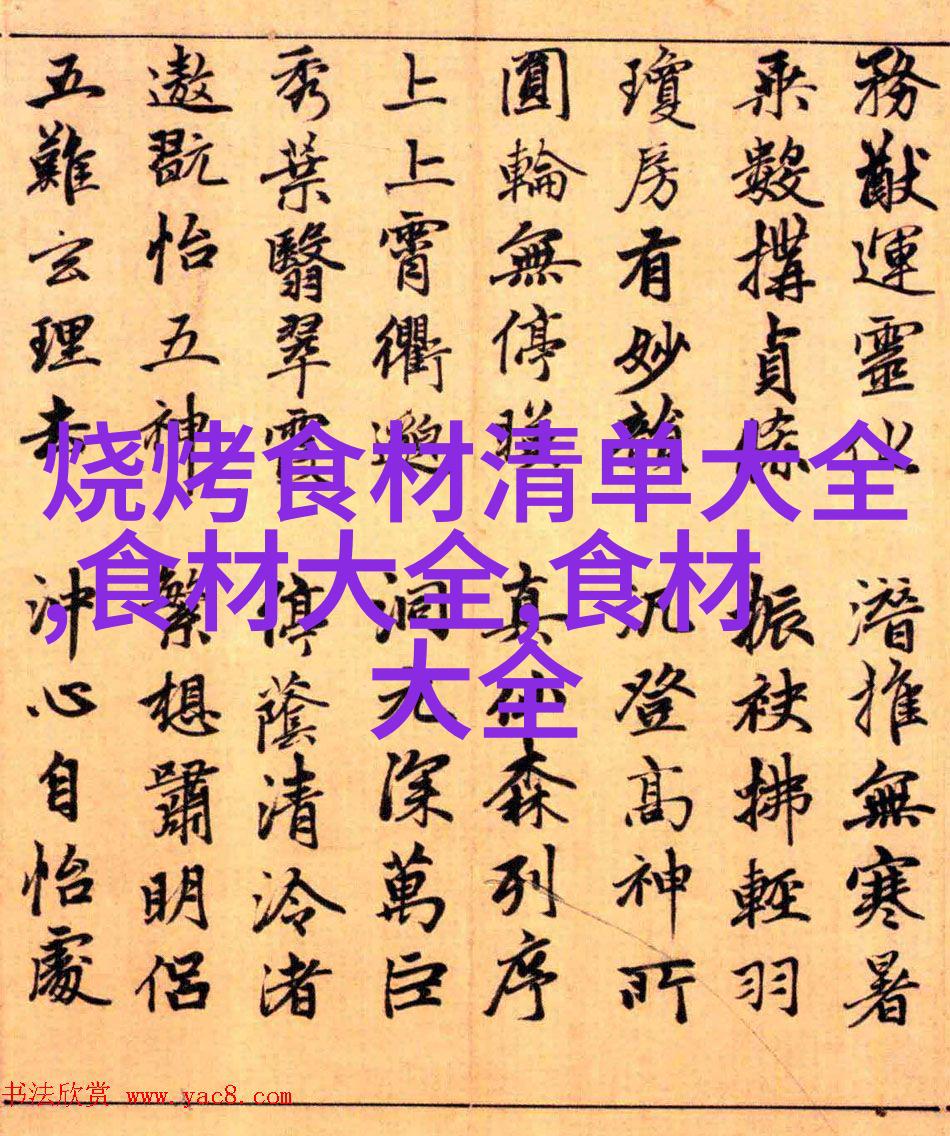 務猷運靈化潛推無寒暑
乘數搆貞振袂拂輕羽
瓊房有妙韻汎登高神所
圓輪無停真森列序
上上霄衢邈洞元深萬巨
秀葉翳翠霞停蔭清泠渚
遨翫怡五神繁想嘯明侶
五難玄理沖心自怡處
烧烤食材清单大全
,食材大全,食材
大全
书法欣赏 www.yac8.com